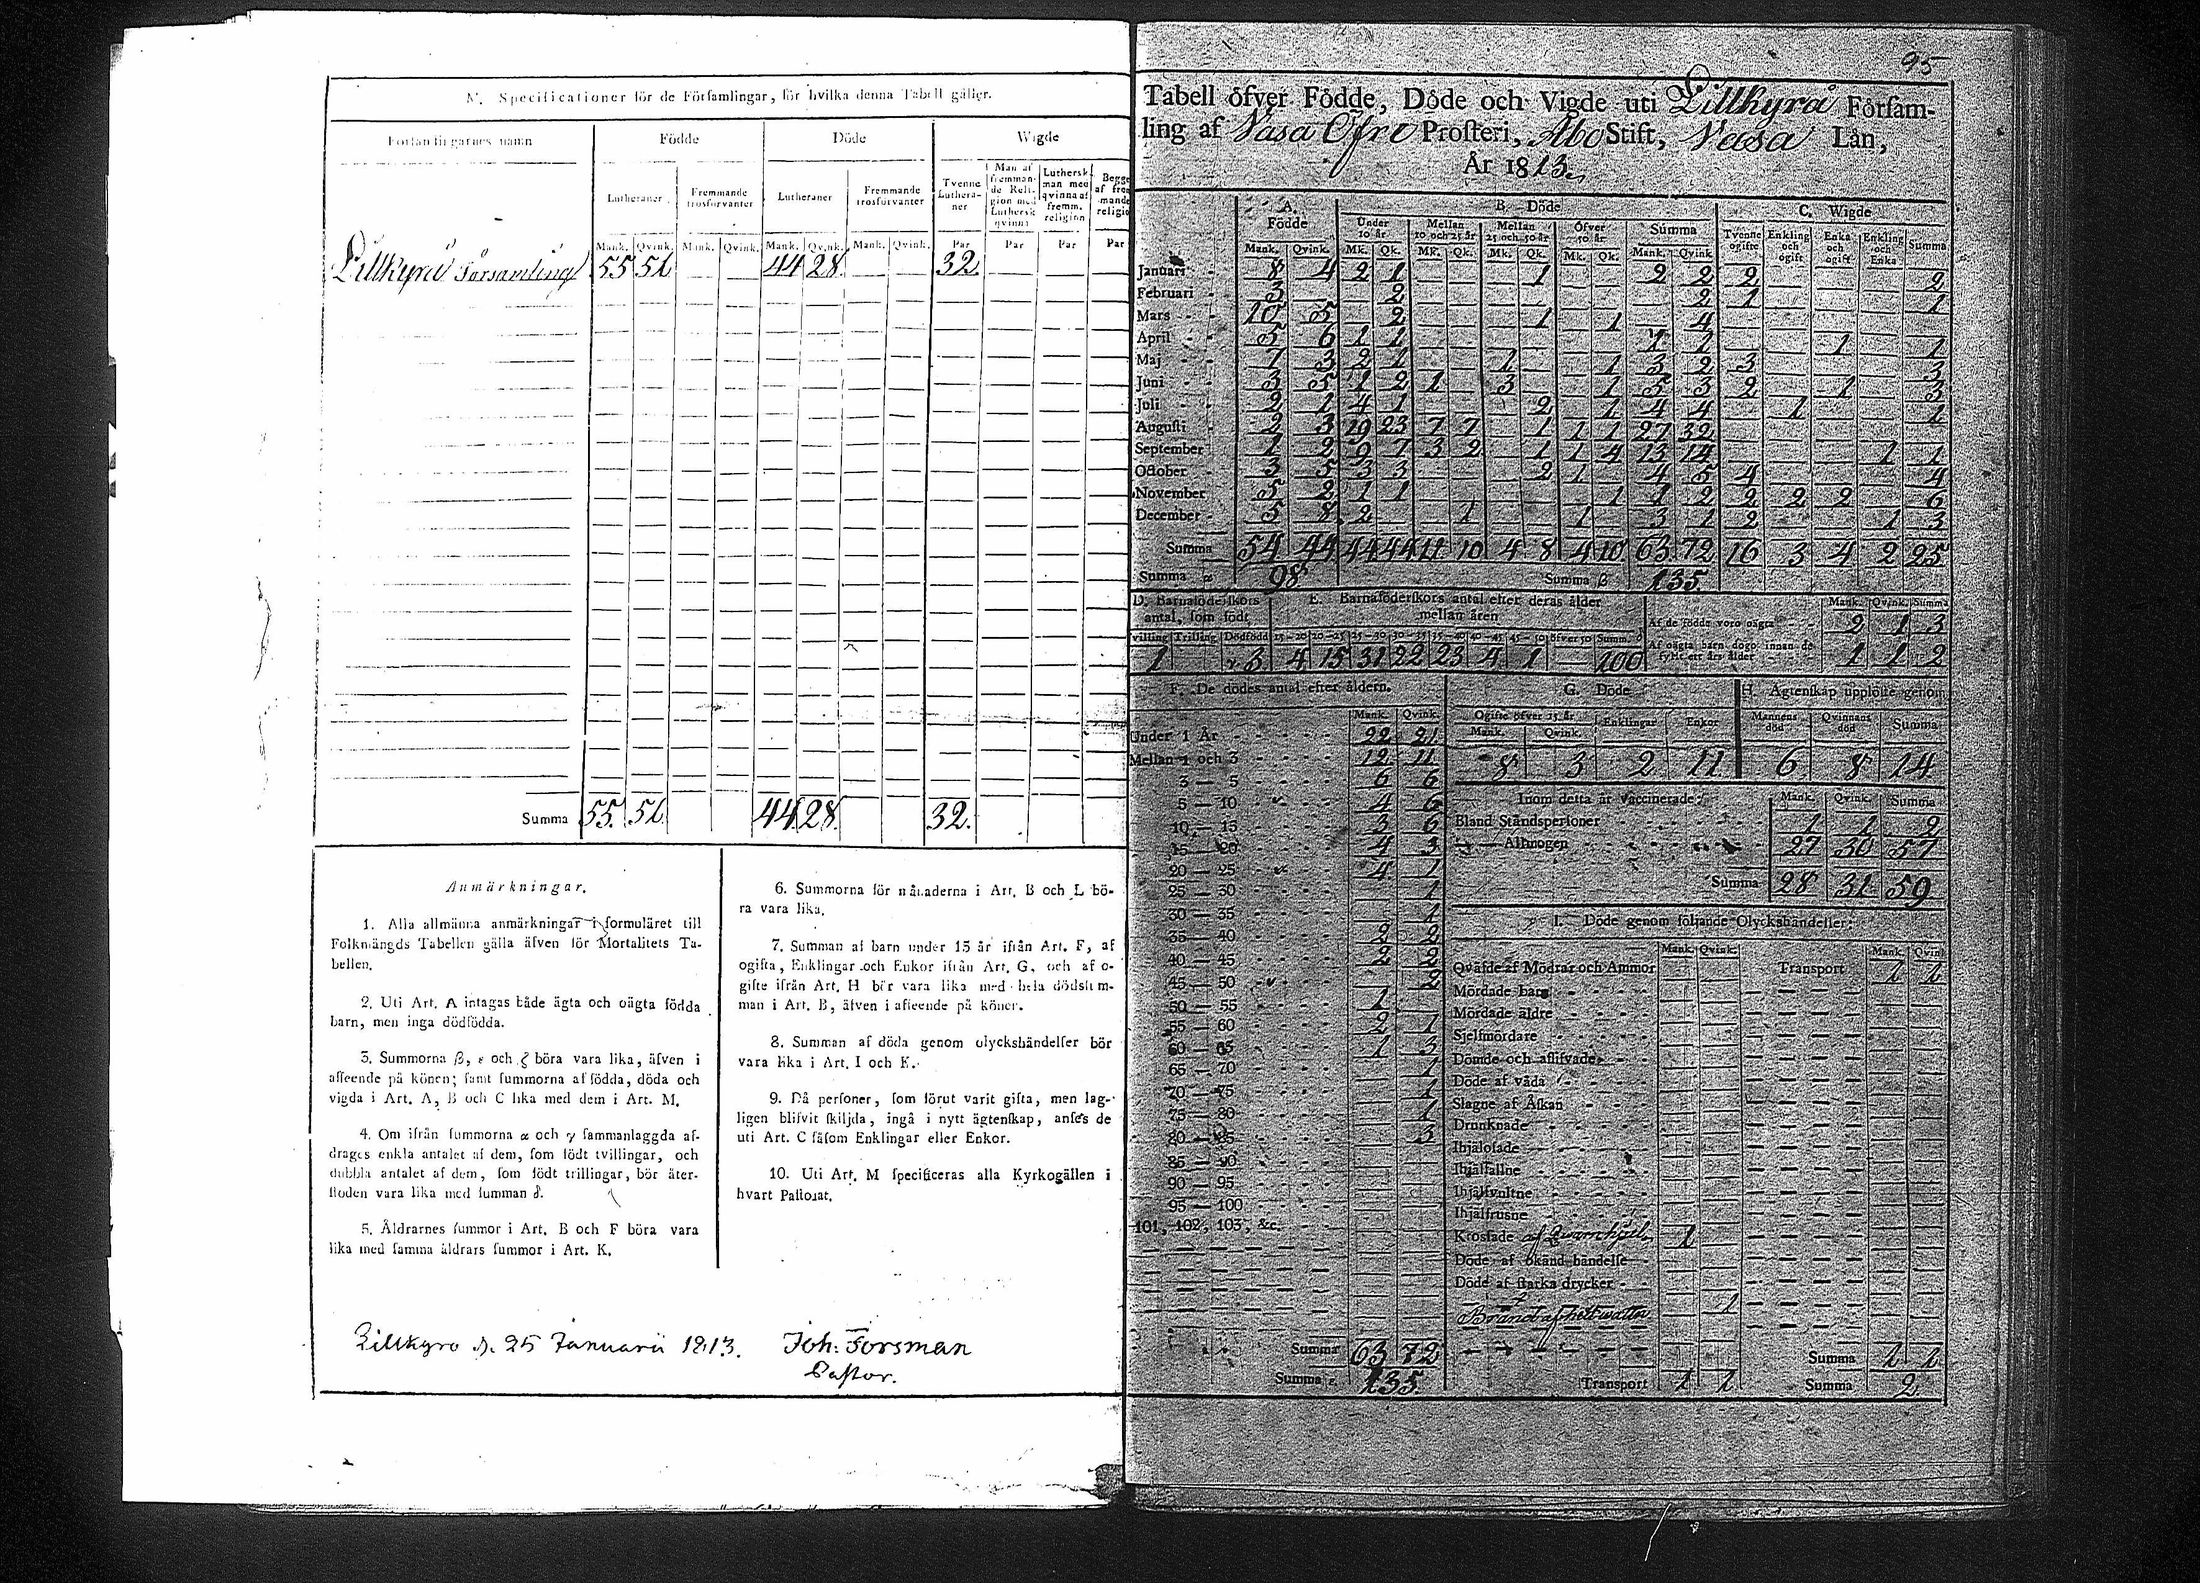 M. Specificationer för de Församlingar, för hvilka denna Tabell gäller.
Församlingarnes namn Födde Döde Wigde
Lutheraner Fremmande trosförvanter Lutheraner Fremmande trosförvanter Tvenne Lutheraner Man af fremmande Religion med Luthersk qvinna Luthersk man med qvinna af fremm. religion
Mank. Qvink. Mank. Qvink. Mank. Qvink. Mank. Qvink. Par Par Par Par
Lillkyrå Församling 55 51 44 28 32
Summa 55. 51 44 28. 32.
Anmärkningar.
1. Alla allmänna anmärkningar i formuläret till
Folkmängds Tabellen gälla äfven för Mortalitets Ta-
bellen.
2. Uti Art. A intagas både ägta och oägta födda
barn, men inga dödfödda.
3. Summorna β, ε och ζ böra vara lika, äfven i
afseende på könen; samt summorna af födda, döda och
vigda i Art. A, B och C lika med dem i Art. M.
4. Om ifrån summorna α och γ sammanlaggda af-
drages enkla antalet af dem, som födt tvillingar, och
dubbla antalet af dem, som födt trillingar, bör åter-
stoden vara lika med summan δ.
5. Åldrarnes summor i Art. B och F böra vara
lika med samma åldrars summor i Art. K.
6. Summorna för månaderna i Art. B och L bö-
ra vara lika.
7. Summan af barn under 15 år ifrån Art. F, af
ogifta, Enklingar och Enkor ifrån Art. G, och af o-
gifte ifrån Art. H bör vara lika med hela dödssum-
man i Art. B, äfven i afseende på könen.
8. Summan af döda genom olyckshändelser bör
vara lika i Art. I och K.
9. Då personer, som förut varit gifta, men lag-
ligen blifvit skiljda, ingå i nytt ägtenskap, anses de
uti Art. C såsom Enklingar eller Enkor.
10. Uti Art. M specificeras alla Kyrkogällen i
hvart Pastorat.
Lillkyro d. 25 Januarii 1813. Joh: Forsman
Pastor.
95
Tabell öfver Födde, Döde och Vigde uti Lillkyrå Församling
ling af Vasa Öfre Prosteri, Åbo Stift, Vasa Län,
År 1813.
A. Födde B. Döde C. Wigde
Under 10 år Mellan 10 och 25 år Mellan 25 och 50 år Öfver 50 år Summa Tvenne ogifte Enkling och ogift Enka och ogift Enkling och Enka Summa
Mank. Qvink. Mk. Qk. Mk. Qk. Mk. Qk. Mk. Qk. Mank. Qvink.
Januari 8 4 2 1 1 2 2 2 2
Februari 3 2 2 1 1
Mars 10 5 2 1 1 4
April 5 6 1 1 1 1 1 1
Maj 7 3 2 1 1 1 3 2 3 3
Juni 3 5 1 2 1 3 1 5 3 2 1 3
Juli 2 1 4 1 2 1 4 4 1 1
Augusti 2 3 19 23 7 7 1 1 1 27 32
September 1 2 9 7 3 2 1 1 4 13 14 1 1
October 3 5 3 3 2 1 4 5 4 4
November 5 2 1 1 1 1 2 2 2 2 6
December 5 8 2 1 1 3 1 2 1 3
Summa 54 44 44 44 11 10 4 8 4 10 63 72 16 3 4 2 25
Summa α 98 Summa β 135.
D. Barnaföderskors antal, som födt E. Barnaföderskors antal efter deras ålder mellan åren Mank. Qvink. Summa
Trilling Dödfödd 15—20 20—25 25—30 30—35 35—40 40—45 45—50 öfver 50 Summ. δ
1 3 4 15 31 22 23 4 1 — 100
Af de födde voro oägta 2 1 3
Af oägta barn dogo innan de fyllt ett års ålder 1 1 2
F. De dödes antal efter åldern.
Mank. Qvink.
Under 1 År 22 21
Mellan 1 och 3 12 11
3 — 5 6 6
5 — 10 4 6
10 — 15 3 6
15 — 20 4 3
20 — 25 4 1
25 — 30 1
30 — 35
35 — 40 2 2
40 — 45 2 2
45 — 50 2
50 — 55 1
55 — 60 2 1
60 — 65 1 3
65 — 70 1
70 — 75 1
75 — 80 1
80 — 85 3
85 — 90
90 — 95
95 — 100
101, 102, 103, &c.
Summa 63 72
Summa ε 135.
G. Döde
Ogifte öfver 15 år Enklingar Enkor
Mank. Qvink.
8 3 2 11
H. Ägtenskap upplöste genom
Mannens död Qvinnans död Summa
6 8 14
Inom detta år Vaccinerade: Mank. Qvink. Summa
Bland Ståndspersoner 1 1 2
— Allmogen 27 30 57
Summa 28 31 59
I. Döde genom följande Olyckshändelser:
Mank. Qvink. Mank. Qvink.
Qväfde af Mödrar och Ammor Transport 1 1
Mördade barn
Mördade äldre
Sjelfmördare
Dömde och aflifvade
Döde af våda
Slagne af Åskan
Drunknade
Ihjälösade
Ihjälfallne
Ihjälfrusne
Krossade af Qvarnhjul 1
Döde af okänd händelse
Döde af starka drycker
Bränd af hett watten 1
Summa 1 1
Transport 1 1 Summa 2